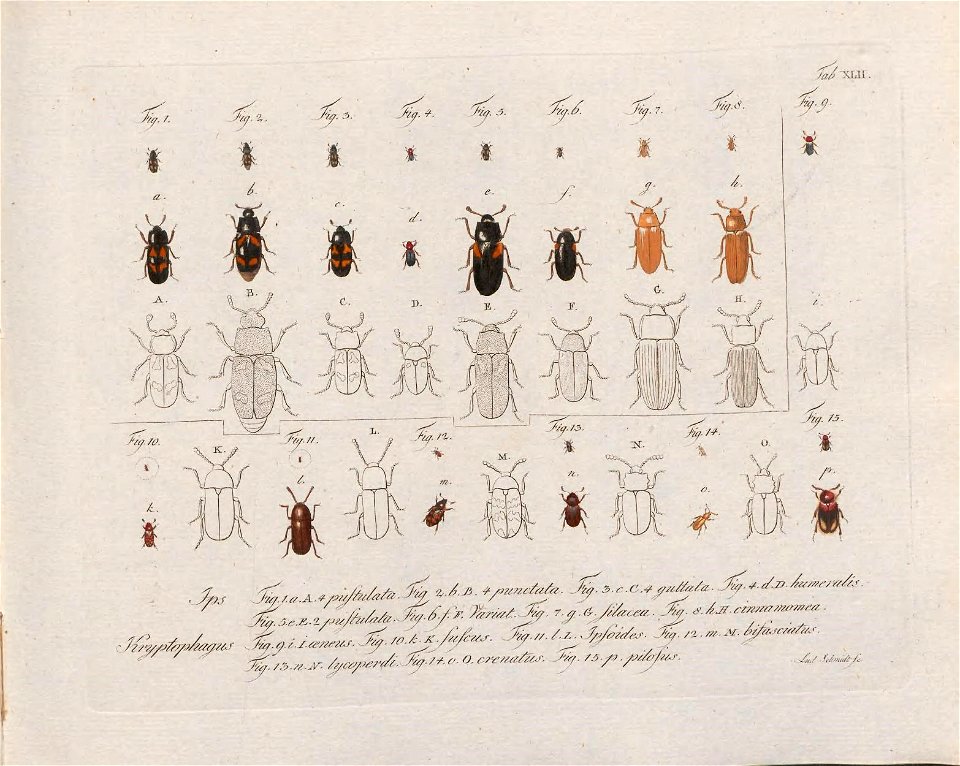 Tab XLII.
Fig. 1. Fig. 2. Fig. 3. Fig. 4. Fig. 5. Fig. 6. Fig. 7. Fig. 8. Fig. 9.
a. b. c. d. e. f. g. h.
A. B. C. D. E. F. G. H. i.
Fig. 10. Fig. 11. Fig. 12. Fig. 13. Fig. 14. Fig. 15.
K. L. M. N. O.
k. l. m. n. o. p.
Ips Fig. 1. a. A. 4 puſtulata. Fig. 2. b. B. 4 punctata. Fig. 3. c. C. 4 guttata. Fig. 4. d. D. humeralis.
Fig. 5. e. E. 2 puſtulata. Fig. 6. f. F. Variat. Fig. 7. g. G. ſilacea. Fig. 8. h. H. cinnamomea.
Kryptophagus Fig. 9. i. I. æneus. Fig. 10. k. K. fuſcus. Fig. 11. l. L. Ipſoides. Fig. 12. m. M. bifaſciatus.
Fig. 13. n. N. lycoperdi. Fig. 14. o. O. crenatus. Fig. 15. p. piloſus.
Schmidt fc.